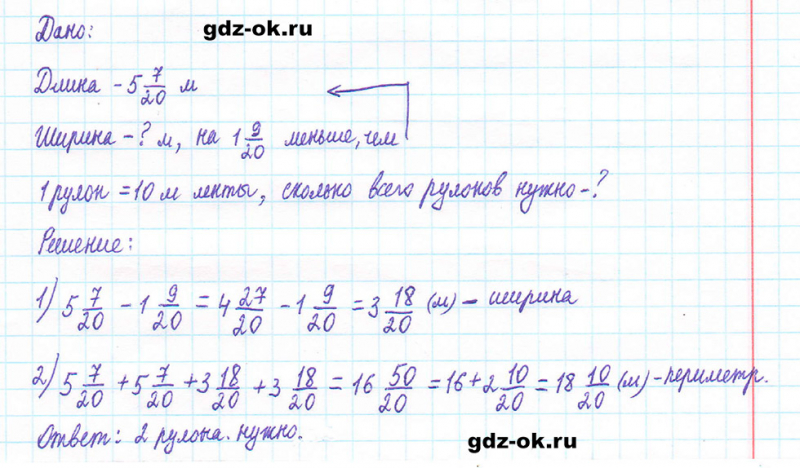 Дано: gdz-ok.ru
Длина - 5 7/20 м
Ширина - ? м, на 1 9/20 меньше, чем
1 рулон = 10 м ленты, сколько всего рулонов нужно - ?
Решение:
1) 5 7/20 - 1 9/20 = 4 27/20 - 1 9/20 = 3 18/20 (м) - ширина
2) 5 7/20 + 5 7/20 + 3 18/20 + 3 18/20 = 16 50/20 = 16 + 2 10/20 = 18 10/20 (м) - периметр.
Ответ: 2 рулона. нужно. gdz-ok.ru